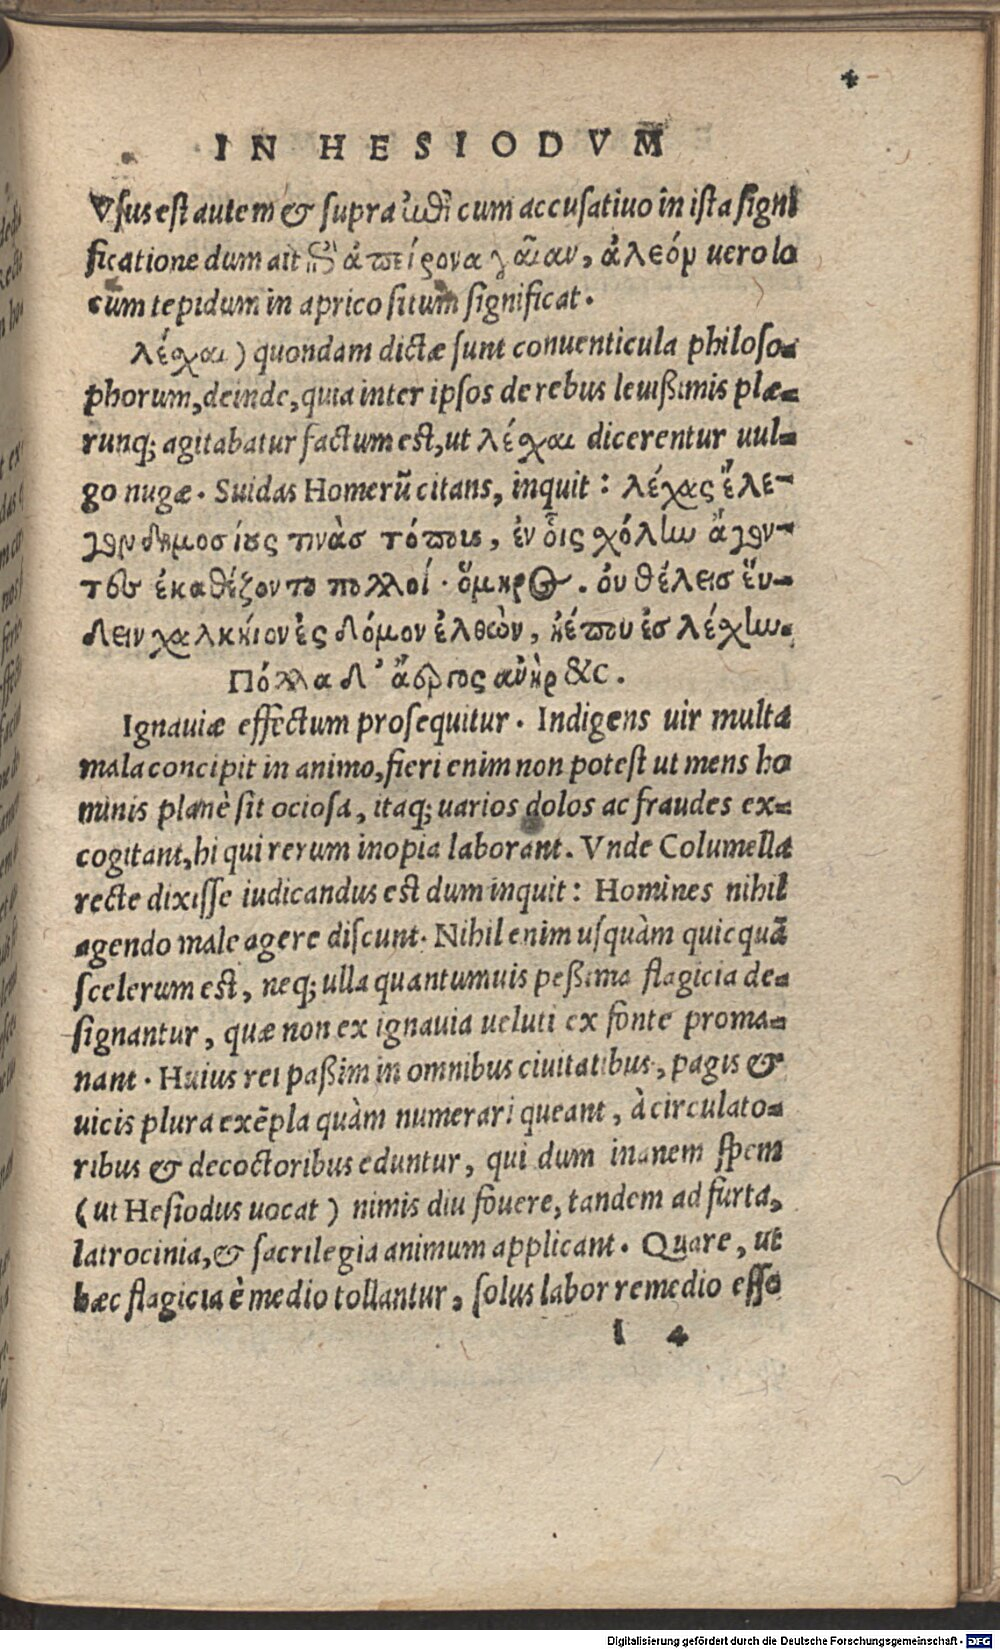 IN HESIODVM
Vsus est autem & supra ἐπὶ cum accusatiuo in ista signi
ficatione dum ait ἐπ' ἀπείρονα γαῖαν, ἀλεόν uero lo
cum tepidum in aprico situm significat.
λέχαι) quondam dictæ sunt conuenticula philoso-
phorum, deinde, quia inter ipsos de rebus leuißimis plæ-
runq; agitabatur factum est, ut λέχαι dicerentur uul-
go nugæ. Suidas Homerū citans, inquit: λέχας ἔλε-
γον δημοσίους τινὰσ τόπους, ἐν οἷς χόλὴν ἄγον-
τες ἐκαθέζοντο πολλοί. ὅμηρος. οὐ θέλεισ εὕ-
δειν χαλκήιον ἐς δόμον ἐλθὼν, ἠέ που ἐσ λέχην.
Πόλλα δ' ἄεργος ἀνὴρ &c.
Ignauiæ effectum prosequitur. Indigens uir multa
mala concipit in animo, fieri enim non potest ut mens ho
minis planè sit ociosa, itaq; uarios dolos ac fraudes ex-
cogitant, hi qui rerum inopia laborant. Vnde Columella
recte dixisse iudicandus est dum inquit: Homines nihil
agendo male agere discunt. Nihil enim usquàm quicquā
scelerum est, neq; ulla quantumuis peßima flagicia de-
signantur, quæ non ex ignauia ueluti ex fonte proma-
nant. Huius rei paßim in omnibus ciuitatibus, pagis &
uicis plura exēpla quàm numerari queant, à circulato-
ribus & decoctoribus eduntur, qui dum inanem spem
(ut Hesiodus uocat) nimis diu fouere, tandem ad furta,
latrocinia, & sacrilegia animum applicant. Quare, ut
hæc flagicia è medio tollantur, solus labor remedio esse
I 4
Digitalisierung gefördert durch die Deutsche Forschungsgemeinschaft - DFG